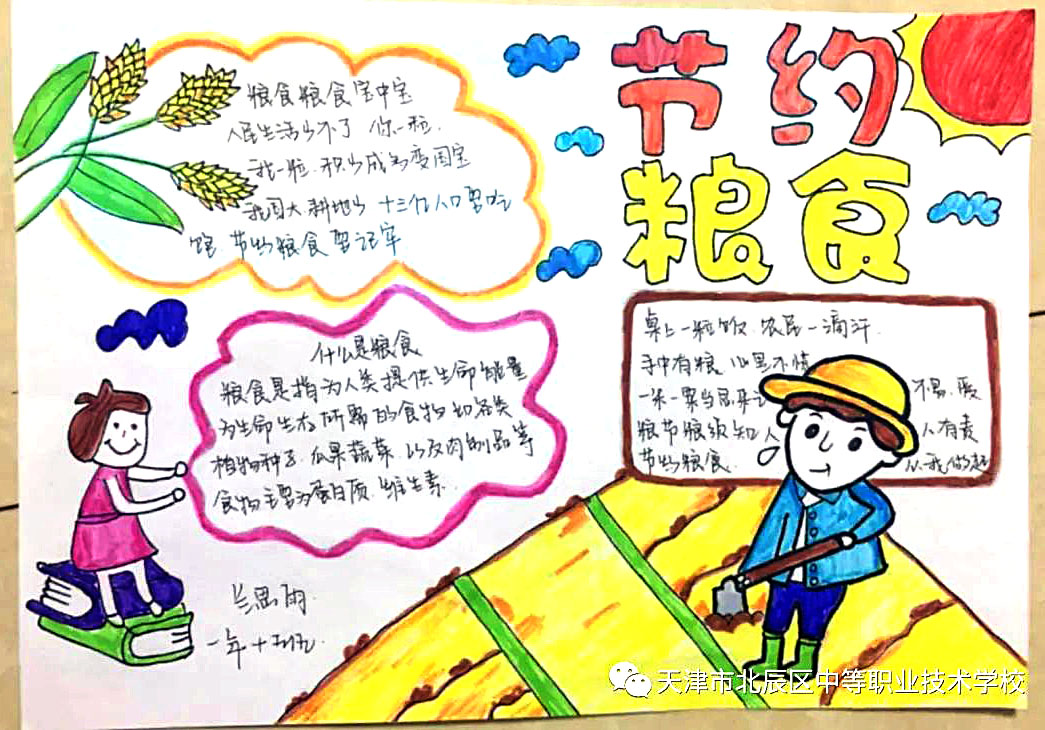 节约
粮食
粮食粮食宝中宝
人民生活少不了 你一粒.
我一粒.积少成多变国宝
我国人耕地少 十三亿人口要吃
饱 节约粮食要记牢
什么是粮食
粮食是指为人类提供生命能量
为生命生存所需的食物 如各类
植物种子.瓜果蔬菜.以及肉制品等
食物主要为蛋白质.维生素.
桌上一粒饭.农民一滴汗.
手中有粮 心里不慌
一米一粟当思来 不易.爱
粮节粮须知 人人有责
节约粮食. 从我做起
兰思雨.
一年十班.
天津市北辰区中等职业技术学校